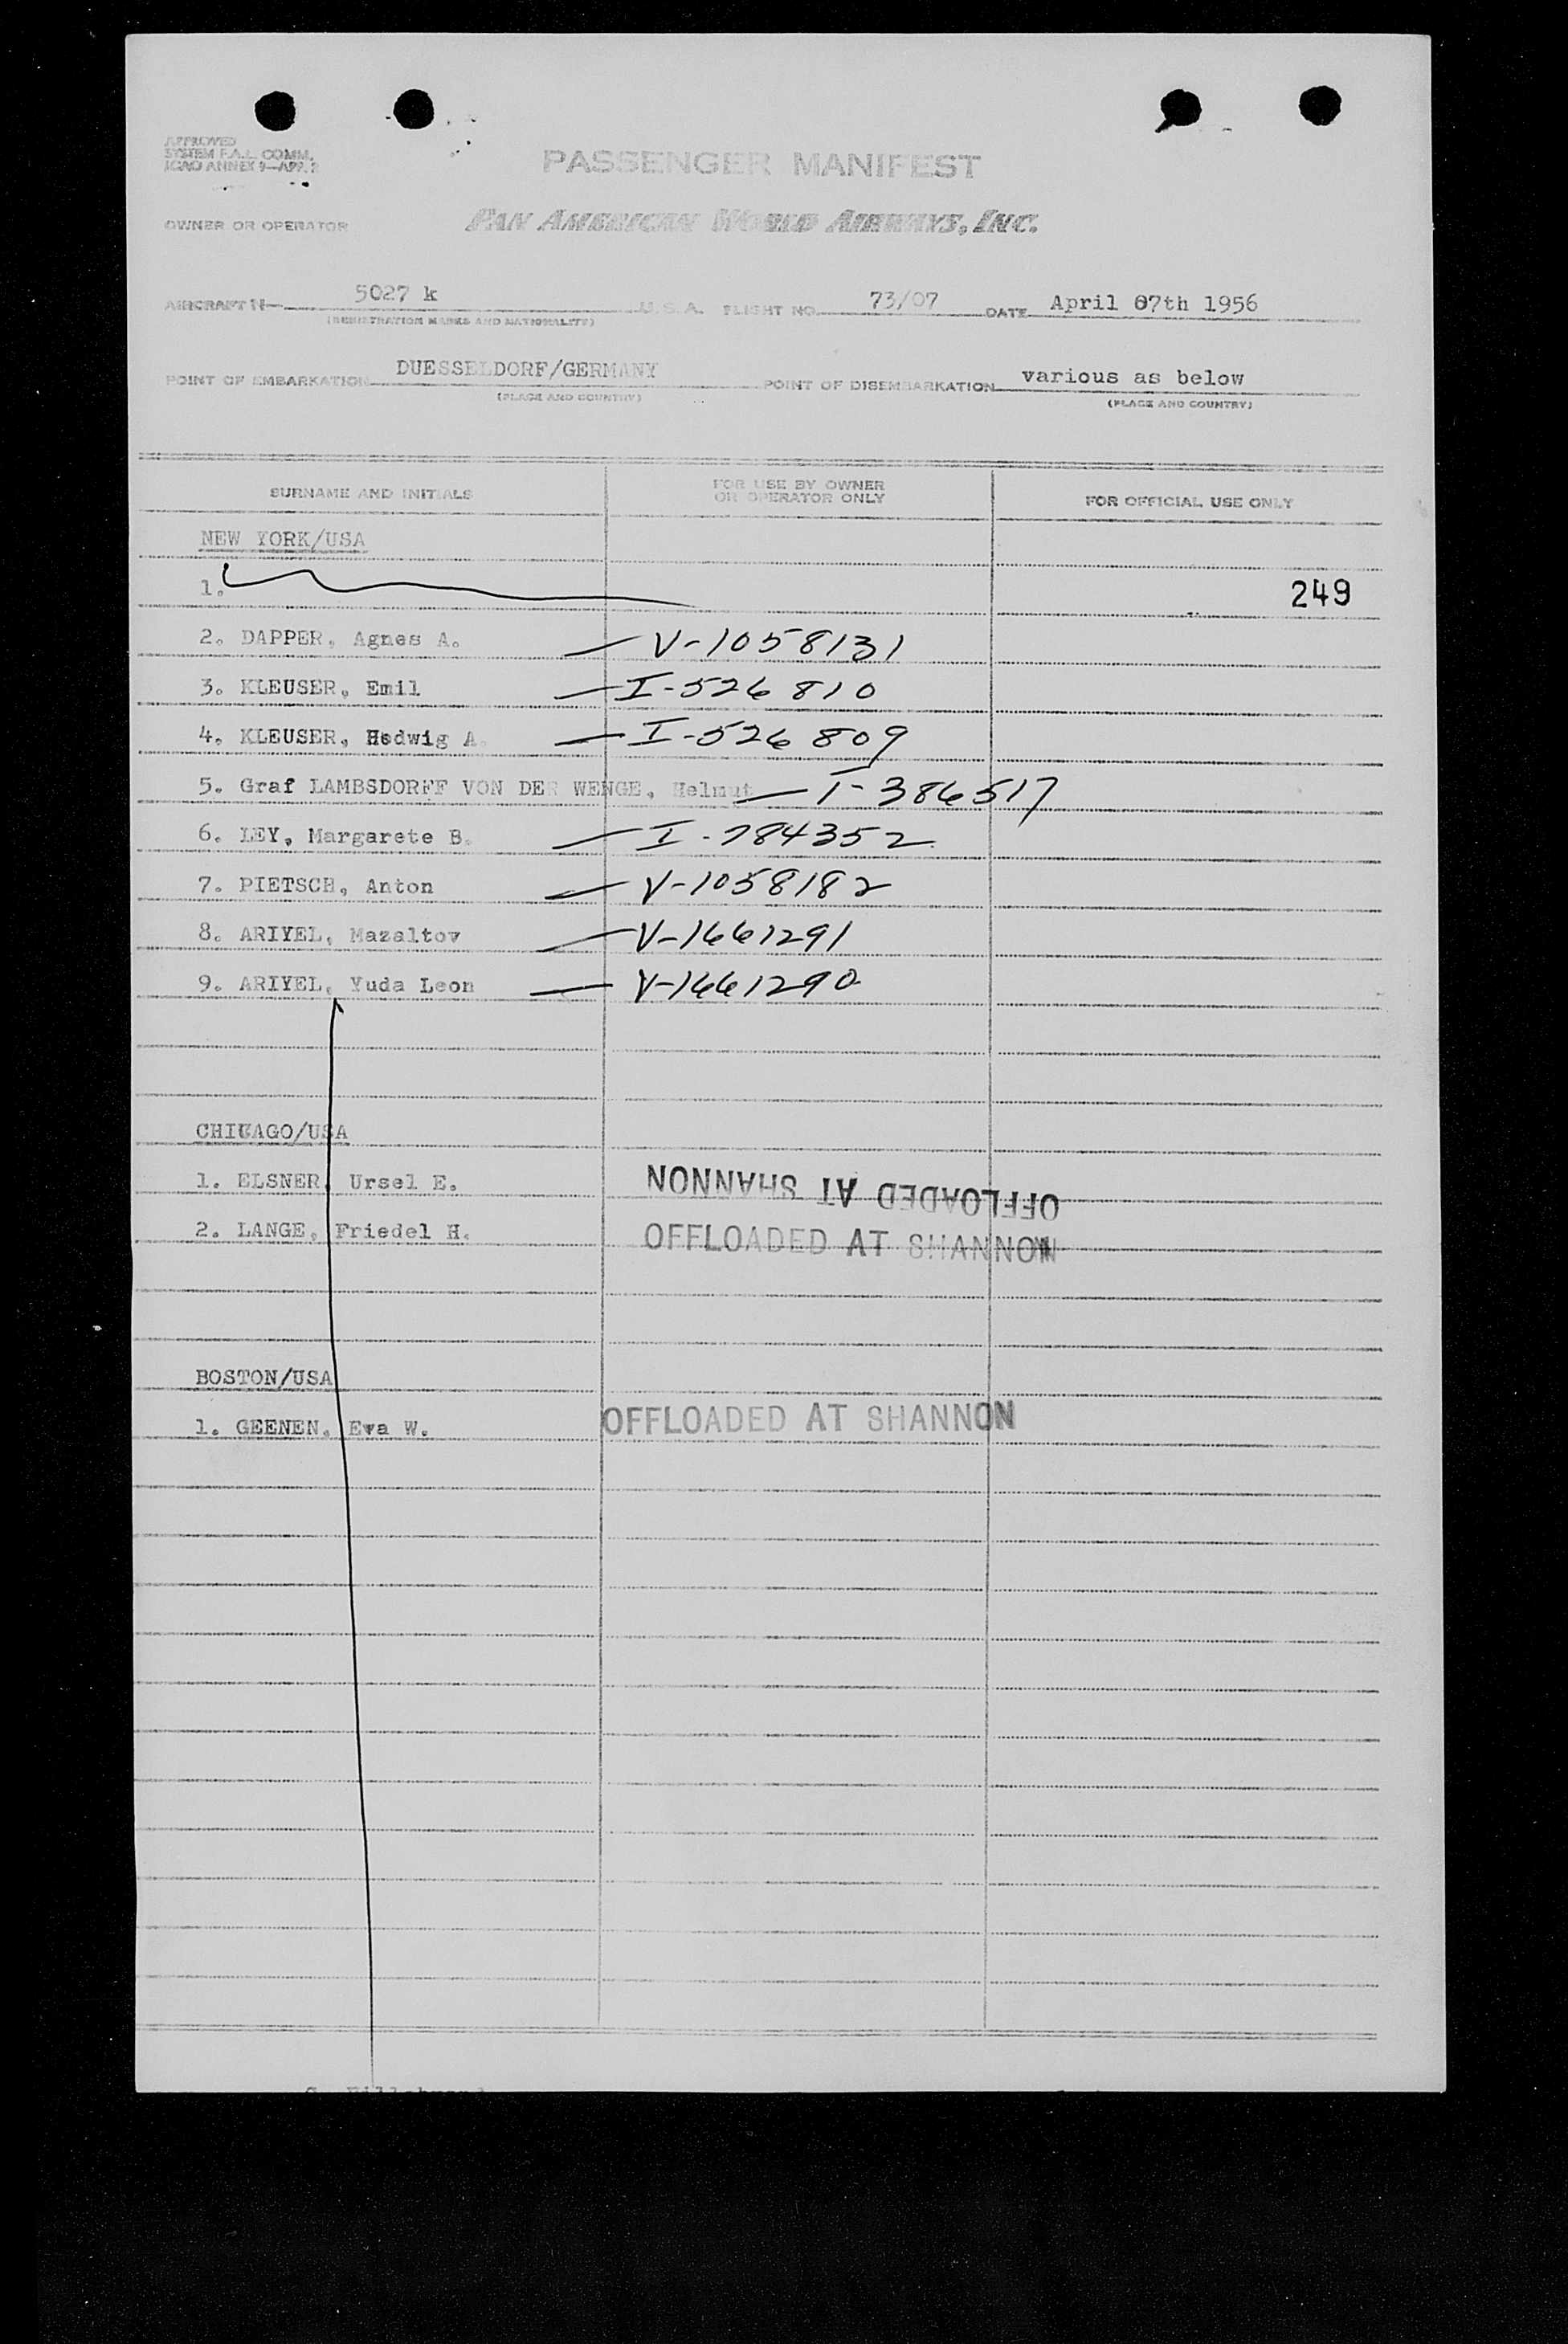 APPROVED
SYSTEM F.A.L. COMM.
ICAO ANNEX 9—APP. 2
PASSENGER MANIFEST
OWNER OR OPERATOR PAN AMERICAN WORLD AIRWAYS, INC.
AIRCRAFT N— 5027 k U. S. A. FLIGHT NO. 73/07 DATE April 07th 1956
(REGISTRATION MARKS AND NATIONALITY)
POINT OF EMBARKATION DUESSELDORF/GERMANY POINT OF DISEMBARKATION various as below
(PLACE AND COUNTRY) (PLACE AND COUNTRY)
SURNAME AND INITIALS FOR USE BY OWNER OR OPERATOR ONLY FOR OFFICIAL USE ONLY
NEW YORK/USA
1. 249
2. DAPPER, Agnes A. — V-1058131
3. KLEUSER, Emil — I-526810
4. KLEUSER, Hedwig A. — I-526809
5. Graf LAMBSDORFF VON DER WENGE, Helmut — I-386517
6. LEY, Margarete B. — I-784352
7. PIETSCH, Anton — V-1058182
8. ARIYEL, Mazaltov — V-1661291
9. ARIYEL, Yuda Leon — V-1661290
CHICAGO/USA
1. ELSNER, Ursel E. OFFLOADED AT SHANNON
2. LANGE, Friedel H. OFFLOADED AT SHANNON
BOSTON/USA
1. GEENEN, Eva W. OFFLOADED AT SHANNON